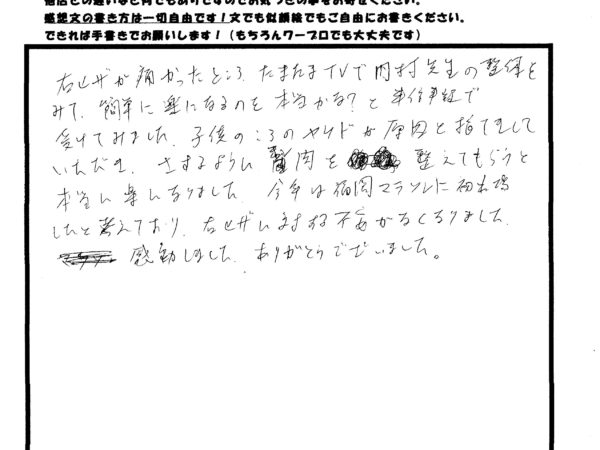 感想文の書き方は一切自由です！文でも似顔絵でもご自由にお書きください。
できれば手書きでお願いします！（もちろんワープロでも大丈夫です）
右ヒザが痛かったところ、たまたまTVで内村先生の整体を
みて、簡単に楽になるのを本当かな？と半信半疑で
受けてみました。子供のころのヤケドが原因と指てきして
いただき、さするように筋肉を整えてもらうと
本当に楽になりました。今年は福岡マラソンに初出場
したいと考えており、右ヒザに対する不安がなくなりました。
感動しました。ありがとうございました。